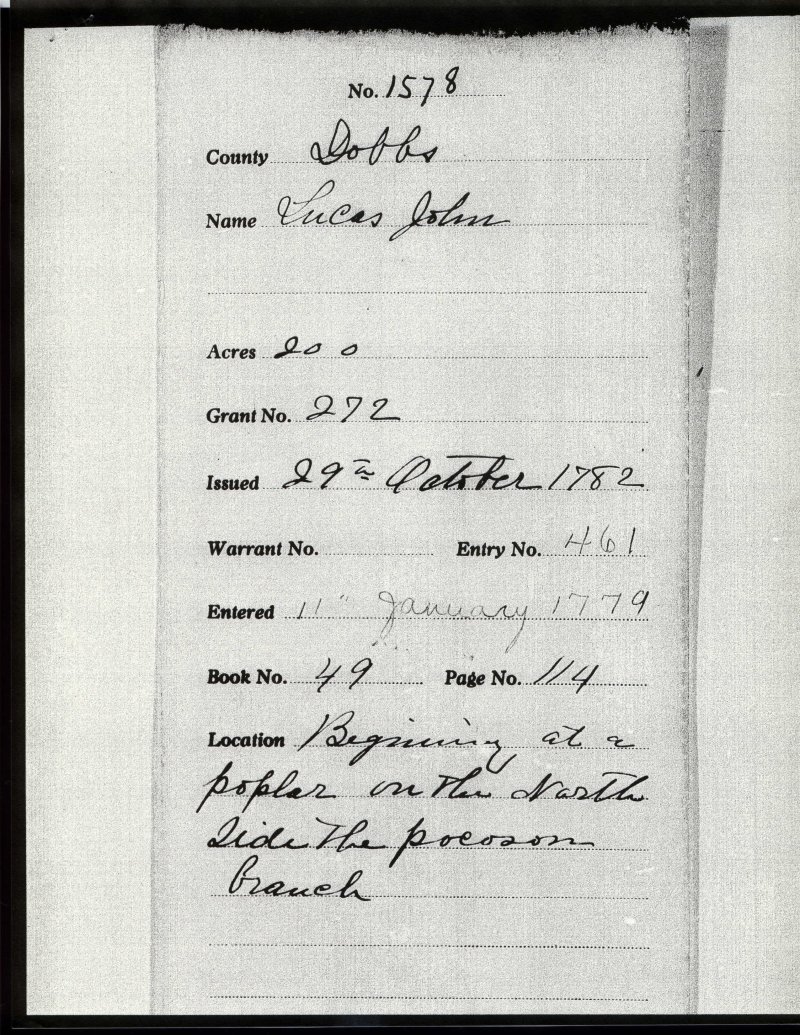 No. 1578
County Dobbs
Name Lucas John
Acres 200
Grant No. 272
Issued 29th October 1782
Warrant No. Entry No. 461
Entered 11th January 1779
Book No. 49 Page No. 114
Location Beginning at a
poplar on the North
Side the pocoson
branch